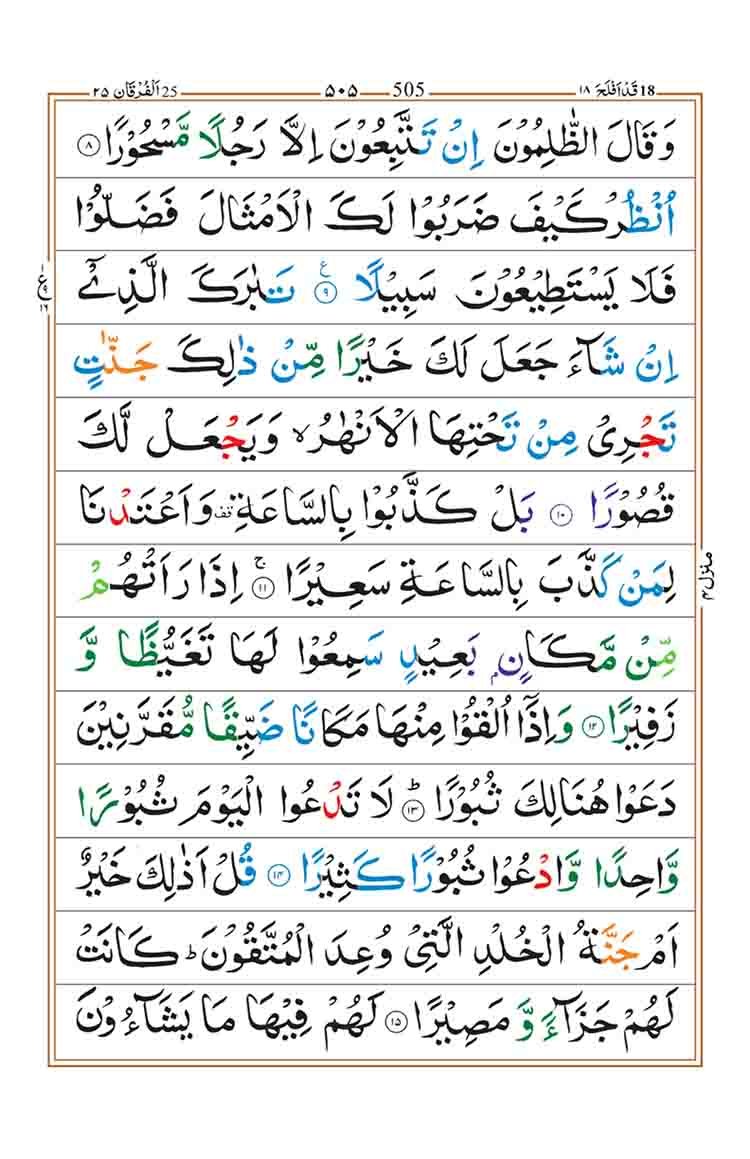 18 قَدْ اَفْلَحَ ۱۸ 505 ۵۰۵ 25 اَلْفُرْقَان ۲۵
وَ قَالَ الظّٰلِمُوْنَ اِنْ تَتَّبِعُوْنَ اِلَّا رَجُلًا مَّسْحُوْرًا ۸
اُنْظُرْ كَيْفَ ضَرَبُوْا لَكَ الْاَمْثَالَ فَضَلُّوْا
فَلَا يَسْتَطِيْعُوْنَ سَبِيْلًا ۹ ع تَبٰرَكَ الَّذِيْۤ
اِنْ شَآءَ جَعَلَ لَكَ خَيْرًا مِّنْ ذٰلِكَ جَنّٰتٍ
تَجْرِيْ مِنْ تَحْتِهَا الْاَنْهٰرُ ۙ وَيَجْعَلْ لَّكَ
قُصُوْرًا ۱۰ بَلْ كَذَّبُوْا بِالسَّاعَةِ قف وَ اَعْتَدْنَا
لِمَنْ كَذَّبَ بِالسَّاعَةِ سَعِيْرًا ۱۱ ج اِذَا رَاَتْهُمْ
مِّنْ مَّكَانٍۭ بَعِيْدٍ سَمِعُوْا لَهَا تَغَيُّظًا وَّ
زَفِيْرًا ۱۲ وَ اِذَاۤ اُلْقُوْا مِنْهَا مَكَانًا ضَيِّقًا مُّقَرَّنِيْنَ
دَعَوْا هُنَالِكَ ثُبُوْرًا ۱۳ ؕ لَا تَدْعُوا الْيَوْمَ ثُبُوْرًا
وَّاحِدًا وَّ ادْعُوْا ثُبُوْرًا كَثِيْرًا ۱۴ قُلْ اَذٰلِكَ خَيْرٌ
اَمْ جَنَّةُ الْخُلْدِ الَّتِيْ وُعِدَ الْمُتَّقُوْنَ ؕ كَانَتْ
لَهُمْ جَزَآءً وَّ مَصِيْرًا ۱۵ لَهُمْ فِيْهَا مَا يَشَآءُوْنَ
ع ۹ ۱۶
منزل ۴